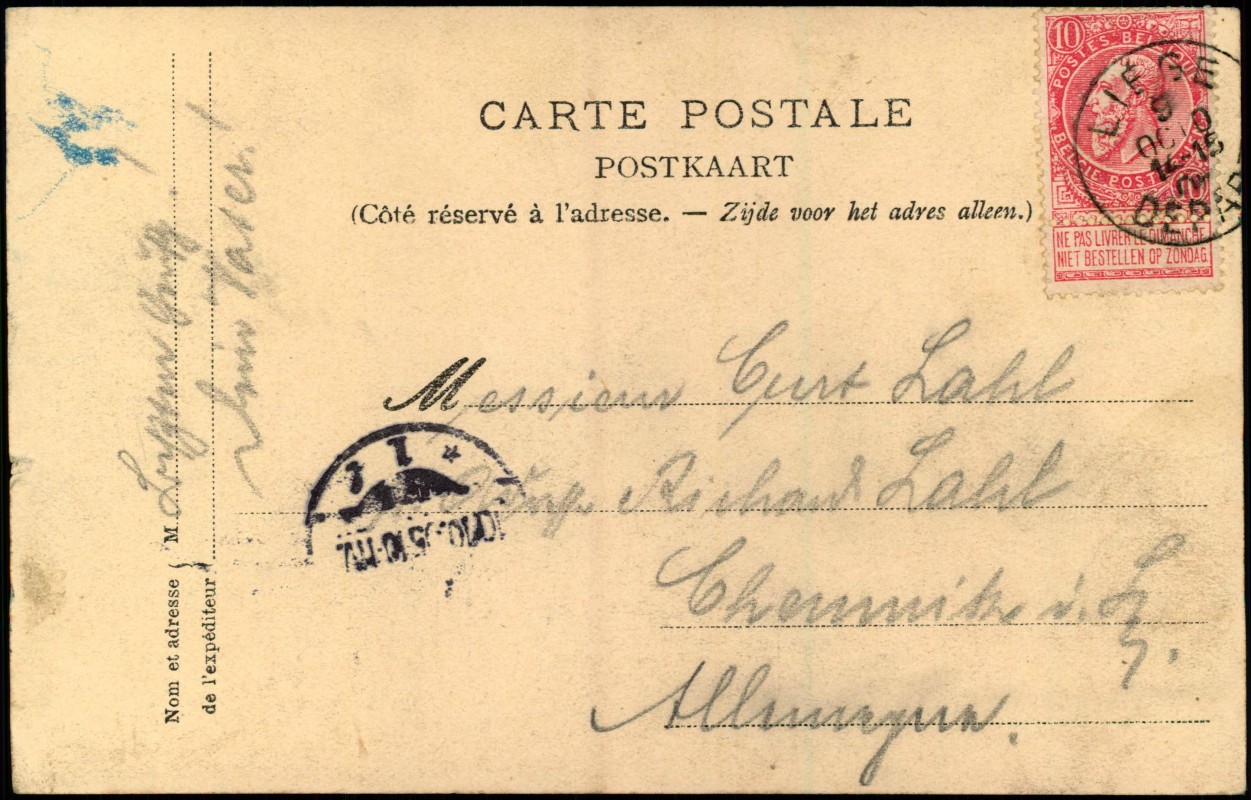 CARTE POSTALE
POSTKAART
(Côté réservé à l'adresse. — Zijde voor het adres alleen.)
10
POSTES. BELGIQUE
BELGIE POSTERIJEN
NE PAS LIVRER LE DIMANCHE
NIET BESTELLEN OP ZONDAG.
LIÉGE
9
OCT
14-15
DEPART
Messieur Curt Lahl
Richard Lahl
Chemnitz i. S.
Allemagne.
Nom et adresse
de l'expéditeur
M
Gruß
Vater!